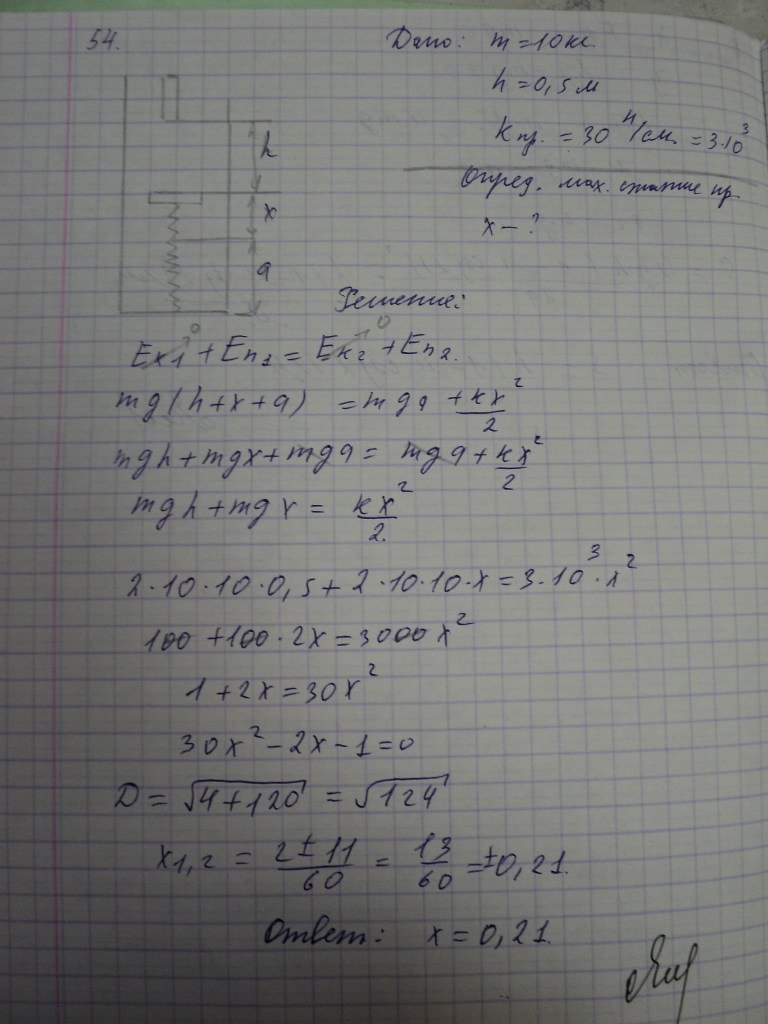 54.
Дано: m = 10 кг.
h = 0,5 м
Kпр. = 30 Н/см. = 3·10³
Опред. мах. сжатие пр.
x – ?
h
x
a
Решение:
Eк1 ⁰ + Eп1 = Eк2 ⁰ + Eп2.
mg(h+x+a) = mga + kx²/2
mgh + mgx + mga = mga + kx²/2
mgh + mgx = kx²/2.
2·10·10·0,5 + 2·10·10·x = 3·10³·x²
100 + 100·2x = 3000x²
1 + 2x = 30x²
30x² – 2x – 1 = 0
D = √4+120 = √124
x1,2 = 2 ± 11/60 = 13/60 = ±0,21.
Ответ: x = 0,21.